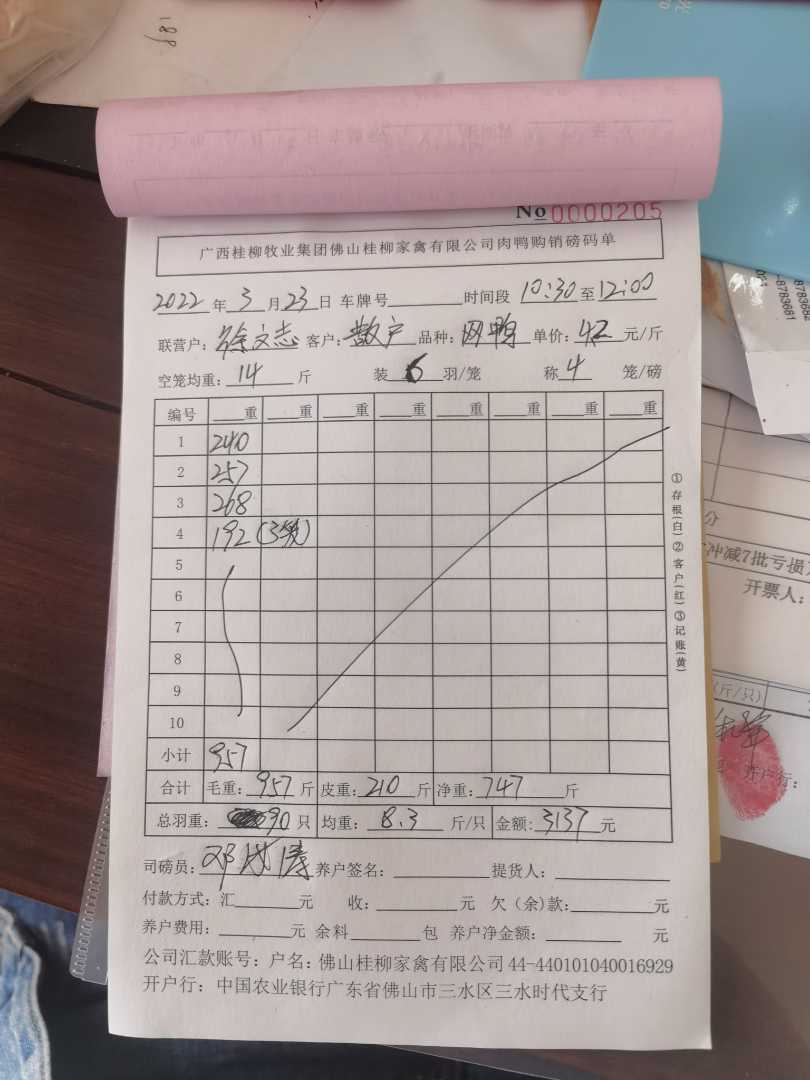 188
No 0000205
广西桂柳牧业集团佛山桂柳家禽有限公司肉鸭购销磅码单
2022 年 3 月 23 日 车牌号 时间段 10:30 至 12:00
联营户：徐文志 客户：散户 品种：网鸭 单价：4.2 元/斤
空笼均重：14 斤 装 6 羽/笼 称 4 笼/磅
编号 重 重 重 重 重 重 重 重
1 240
2 257
3 268
4 192 (3笼)
5
6
7
8
9
10
小计 957
合计 毛重：957 斤 皮重：210 斤 净重：747 斤
总羽重：90 只 均重：8.3 斤/只 金额：3137 元
司磅员：邓 养户签名： 提货人：
付款方式：汇 元 收： 元 欠（余）款： 元
养户费用： 元 余料 包 养户净金额： 元
公司汇款账号：户名：佛山桂柳家禽有限公司 44-440101040016929
开户行：中国农业银行广东省佛山市三水区三水时代支行
①存根(白)②客户(红)③记账(黄)
-8783682
-8783681
分
冲减7批亏损
开票人：
(斤/只)
开户行：